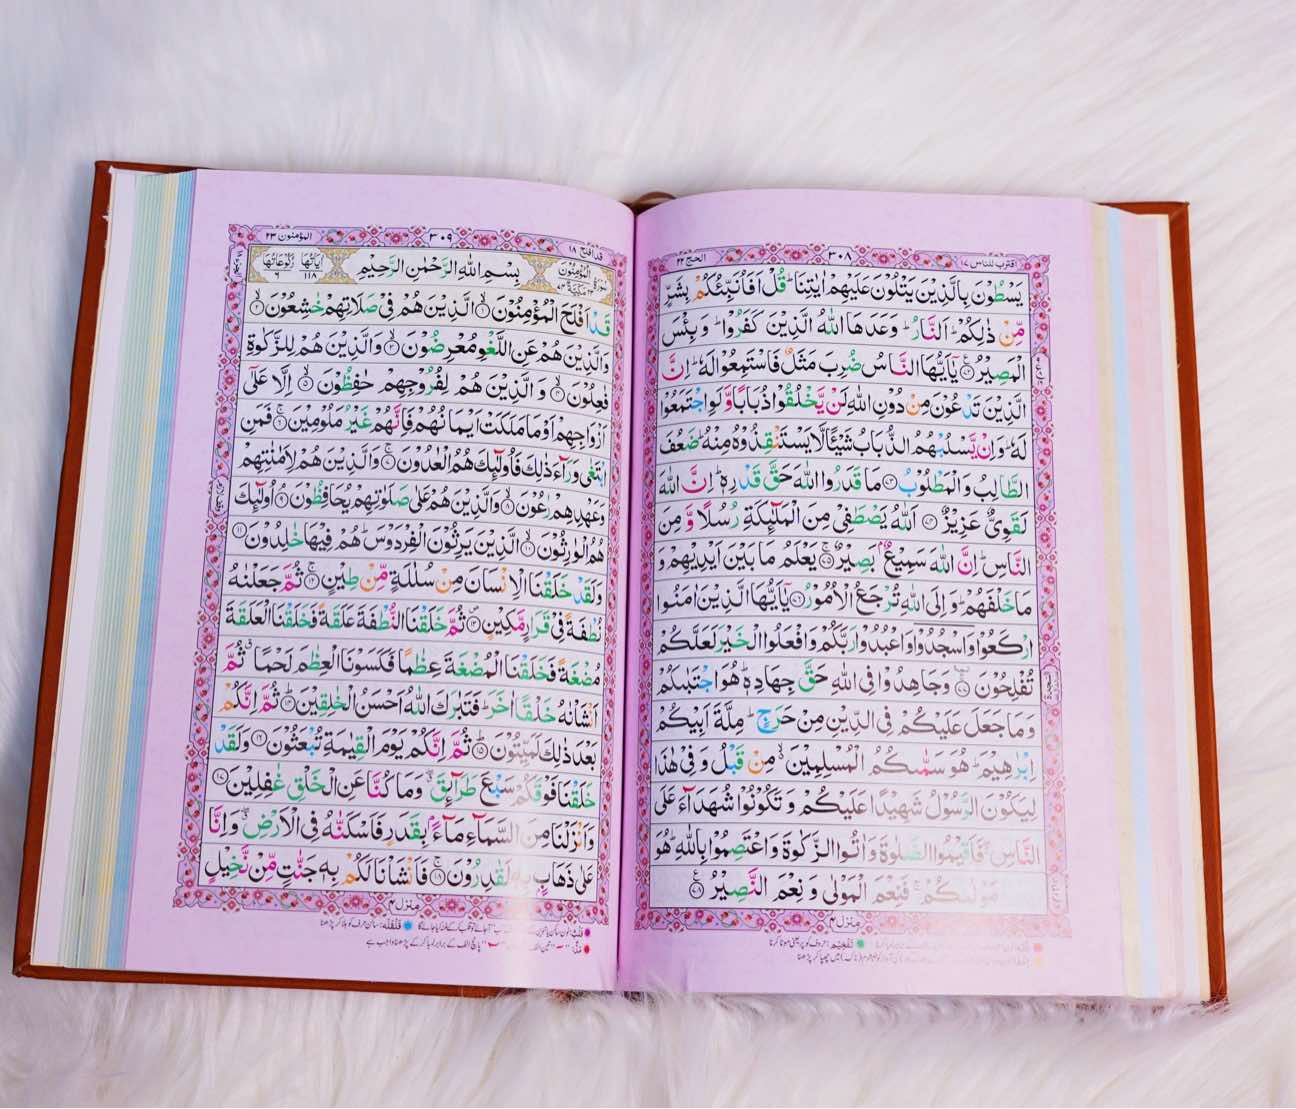 اقترب للناس ۱۷
۳۰۸
الحج ۲۲
يَسْطُوْنَ بِالَّذِيْنَ يَتْلُوْنَ عَلَيْهِمْ اٰيٰتِنَا ؕ قُلْ اَفَاُنَبِّئُكُمْ بِشَرٍّ
مِّنْ ذٰلِكُمْ ؕ اَلنَّارُ ؕ وَعَدَهَا اللّٰهُ الَّذِيْنَ كَفَرُوْا ؕ وَبِئْسَ
الْمَصِيْرُ ۟﴿۷۲﴾ يٰۤاَيُّهَا النَّاسُ ضُرِبَ مَثَلٌ فَاسْتَمِعُوْا لَهٗ ؕ اِنَّ
الَّذِيْنَ تَدْعُوْنَ مِنْ دُوْنِ اللّٰهِ لَنْ يَّخْلُقُوْا ذُبَابًا وَّلَوِ اجْتَمَعُوْا
لَهٗ ؕ وَاِنْ يَّسْلُبْهُمُ الذُّبَابُ شَيْـًٔا لَّا يَسْتَنْقِذُوْهُ مِنْهُ ؕ ضَعُفَ
الطَّالِبُ وَالْمَطْلُوْبُ ﴿۷۳﴾ مَا قَدَرُوا اللّٰهَ حَقَّ قَدْرِهٖ ؕ اِنَّ اللّٰهَ
لَقَوِيٌّ عَزِيْزٌ ﴿۷۴﴾ اَللّٰهُ يَصْطَفِيْ مِنَ الْمَلٰٓئِكَةِ رُسُلًا وَّمِنَ
النَّاسِ ؕ اِنَّ اللّٰهَ سَمِيْعٌۢ بَصِيْرٌ ﴿۷۵﴾ يَعْلَمُ مَا بَيْنَ اَيْدِيْهِمْ وَ
مَا خَلْفَهُمْ ؕ وَاِلَى اللّٰهِ تُرْجَعُ الْاُمُوْرُ ﴿۷۶﴾ يٰۤاَيُّهَا الَّذِيْنَ اٰمَنُوا
ارْكَعُوْا وَاسْجُدُوْا وَاعْبُدُوْا رَبَّكُمْ وَافْعَلُوا الْخَيْرَ لَعَلَّكُمْ
تُفْلِحُوْنَ ﴿۷۷﴾ وَجَاهِدُوْا فِي اللّٰهِ حَقَّ جِهَادِهٖ ؕ هُوَ اجْتَبٰىكُمْ
وَمَا جَعَلَ عَلَيْكُمْ فِي الدِّيْنِ مِنْ حَرَجٍ ؕ مِلَّةَ اَبِيْكُمْ
اِبْرٰهِيْمَ ؕ هُوَ سَمّٰىكُمُ الْمُسْلِمِيْنَ ۙ مِنْ قَبْلُ وَفِيْ هٰذَا
لِيَكُوْنَ الرَّسُوْلُ شَهِيْدًا عَلَيْكُمْ وَتَكُوْنُوْا شُهَدَآءَ عَلَى
النَّاسِ ۖۚ فَاَقِيْمُوا الصَّلٰوةَ وَاٰتُوا الزَّكٰوةَ وَاعْتَصِمُوْا بِاللّٰهِ ؕ هُوَ
مَوْلٰىكُمْ ۚ فَنِعْمَ الْمَوْلٰى وَنِعْمَ النَّصِيْرُ ﴿۷۸﴾
منزل ۴
قد افلح ۱۸
۳۰۹
المؤمنون ۲۳
سُوْرَةُ الْمُؤْمِنُوْنَ مَكِّيَّةٌ
بِسْمِ اللّٰهِ الرَّحْمٰنِ الرَّحِيْمِ
اٰيَاتُهَا ۱۱۸ رُكُوْعَاتُهَا ۶
قَدْ اَفْلَحَ الْمُؤْمِنُوْنَ ﴿۱﴾ الَّذِيْنَ هُمْ فِيْ صَلَاتِهِمْ خٰشِعُوْنَ ﴿۲﴾
وَالَّذِيْنَ هُمْ عَنِ اللَّغْوِ مُعْرِضُوْنَ ﴿۳﴾ وَالَّذِيْنَ هُمْ لِلزَّكٰوةِ
فٰعِلُوْنَ ﴿۴﴾ وَالَّذِيْنَ هُمْ لِفُرُوْجِهِمْ حٰفِظُوْنَ ﴿۵﴾ اِلَّا عَلٰۤى
اَزْوَاجِهِمْ اَوْ مَا مَلَكَتْ اَيْمَانُهُمْ فَاِنَّهُمْ غَيْرُ مَلُوْمِيْنَ ﴿۶﴾ فَمَنِ
ابْتَغٰى وَرَآءَ ذٰلِكَ فَاُولٰٓئِكَ هُمُ الْعٰدُوْنَ ﴿۷﴾ وَالَّذِيْنَ هُمْ لِاَمٰنٰتِهِمْ
وَعَهْدِهِمْ رٰعُوْنَ ﴿۸﴾ وَالَّذِيْنَ هُمْ عَلٰى صَلَوٰتِهِمْ يُحَافِظُوْنَ ﴿۹﴾ اُولٰٓئِكَ
هُمُ الْوٰرِثُوْنَ ﴿۱۰﴾ الَّذِيْنَ يَرِثُوْنَ الْفِرْدَوْسَ ؕ هُمْ فِيْهَا خٰلِدُوْنَ ﴿۱۱﴾
وَلَقَدْ خَلَقْنَا الْاِنْسَانَ مِنْ سُلٰلَةٍ مِّنْ طِيْنٍ ﴿۱۲﴾ ثُمَّ جَعَلْنٰهُ
نُطْفَةً فِيْ قَرَارٍ مَّكِيْنٍ ﴿۱۳﴾ ثُمَّ خَلَقْنَا النُّطْفَةَ عَلَقَةً فَخَلَقْنَا الْعَلَقَةَ
مُضْغَةً فَخَلَقْنَا الْمُضْغَةَ عِظٰمًا فَكَسَوْنَا الْعِظٰمَ لَحْمًا ٭ ثُمَّ
اَنْشَاْنٰهُ خَلْقًا اٰخَرَ ؕ فَتَبٰرَكَ اللّٰهُ اَحْسَنُ الْخٰلِقِيْنَ ﴿۱۴﴾ ثُمَّ اِنَّكُمْ
بَعْدَ ذٰلِكَ لَمَيِّتُوْنَ ﴿۱۵﴾ ثُمَّ اِنَّكُمْ يَوْمَ الْقِيٰمَةِ تُبْعَثُوْنَ ﴿۱۶﴾ وَلَقَدْ
خَلَقْنَا فَوْقَكُمْ سَبْعَ طَرَآئِقَ ٭ وَمَا كُنَّا عَنِ الْخَلْقِ غٰفِلِيْنَ ﴿۱۷﴾
وَاَنْزَلْنَا مِنَ السَّمَآءِ مَآءًۢ بِقَدَرٍ فَاَسْكَنّٰهُ فِي الْاَرْضِ ٭ وَاِنَّا
عَلٰى ذَهَابٍۭ بِهٖ لَقٰدِرُوْنَ ﴿۱۸﴾ فَاَنْشَاْنَا لَكُمْ بِهٖ جَنّٰتٍ مِّنْ نَّخِيْلٍ
منزل ۴